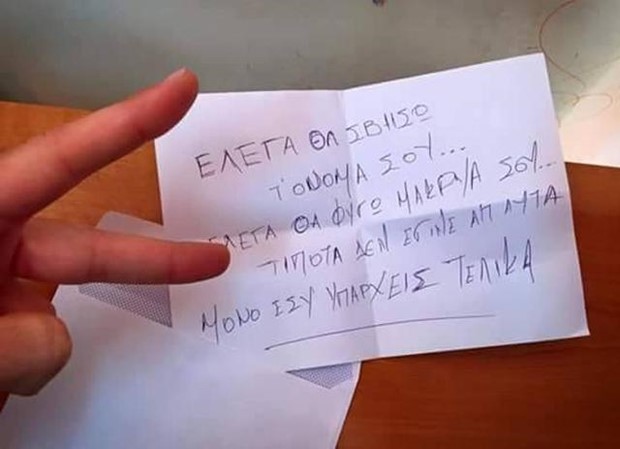 ΕΛΕΓΑ ΘΑ ΣΒΗΣΩ
Τ'ΟΝΟΜΑ ΣΟΥ...
ΕΛΕΓΑ ΘΑ ΦΥΓΩ ΜΑΚΡΥΑ ΣΟΥ...
ΤΙΠΟΤΑ ΔΕΝ ΕΓΙΝΕ ΑΠ ΑΥΤΑ
ΜΟΝΟ ΕΣΥ ΥΠΑΡΧΕΙΣ ΤΕΛΙΚΑ